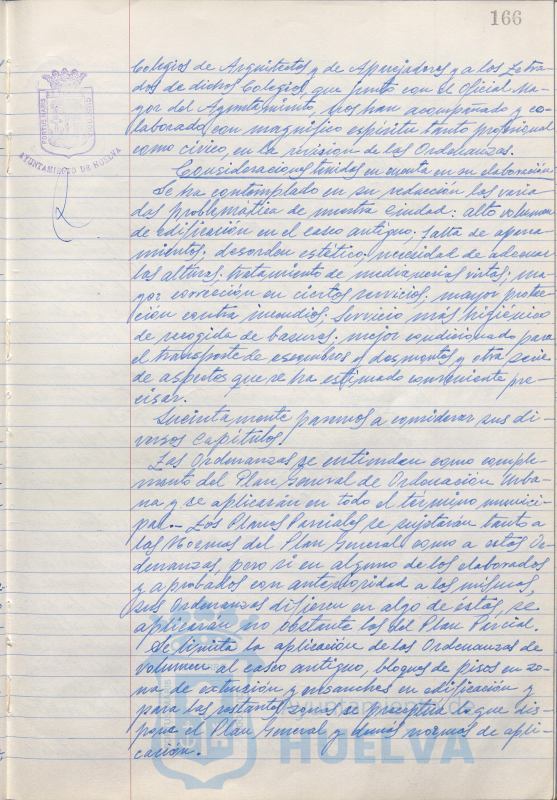 166
Colegios de Arquitectos y de Aparejadores y a los Letra-
dos de dichos Colegios, que junto con el Oficial Ma-
yor del Ayuntamiento nos han acompañado y co-
laborado con magnífico espíritu tanto profesional
como cívico, en la revisión de las Ordenanzas.
Consideraciones tenidas en cuenta en su elaboración
Se ha contemplado en su redacción las varia-
das problemática de nuestra Ciudad: alto volumen
de edificación en el casco antiguo; falta de aparca-
mientos; desorden estético; necesidad de adecuar
las alturas; tratamiento de medianerías vistas; ma-
yor corrección en ciertos servicios; mayor protec-
ción contra incendios; Servicio más higiénico
de recogida de basuras; mejor condicionado para
el transporte de escombros o desmontes y otra serie
de aspectos que se ha estimado conveniente pre-
cisar.
Sucintamente pasamos a considerar sus di-
versos Capítulos.
Las Ordenanzas se entienden como comple-
mento del Plan General de Ordenación Urba-
na y se aplicarán en todo el término munici-
pal.- Los Planes Parciales se sujetarán tanto a
las Normas del Plan General como a estas Or-
denanzas, pero si en alguno de los elaborados
y aprobados con anterioridad a las mismas,
sus Ordenanzas difieren en algo de éstas, se
aplicarán no obstante las del Plan Parcial.
Se limita la aplicación de las Ordenanzas de
volumen al casco antiguo, bloques de pisos en zo-
na de extensión y ensanches en edificación y
para las restantes zonas se preceptúa lo que dis-
pone el Plan General y demás normas de apli-
cación.
AYUNTAMIENTO DE HUELVA
HUELVA